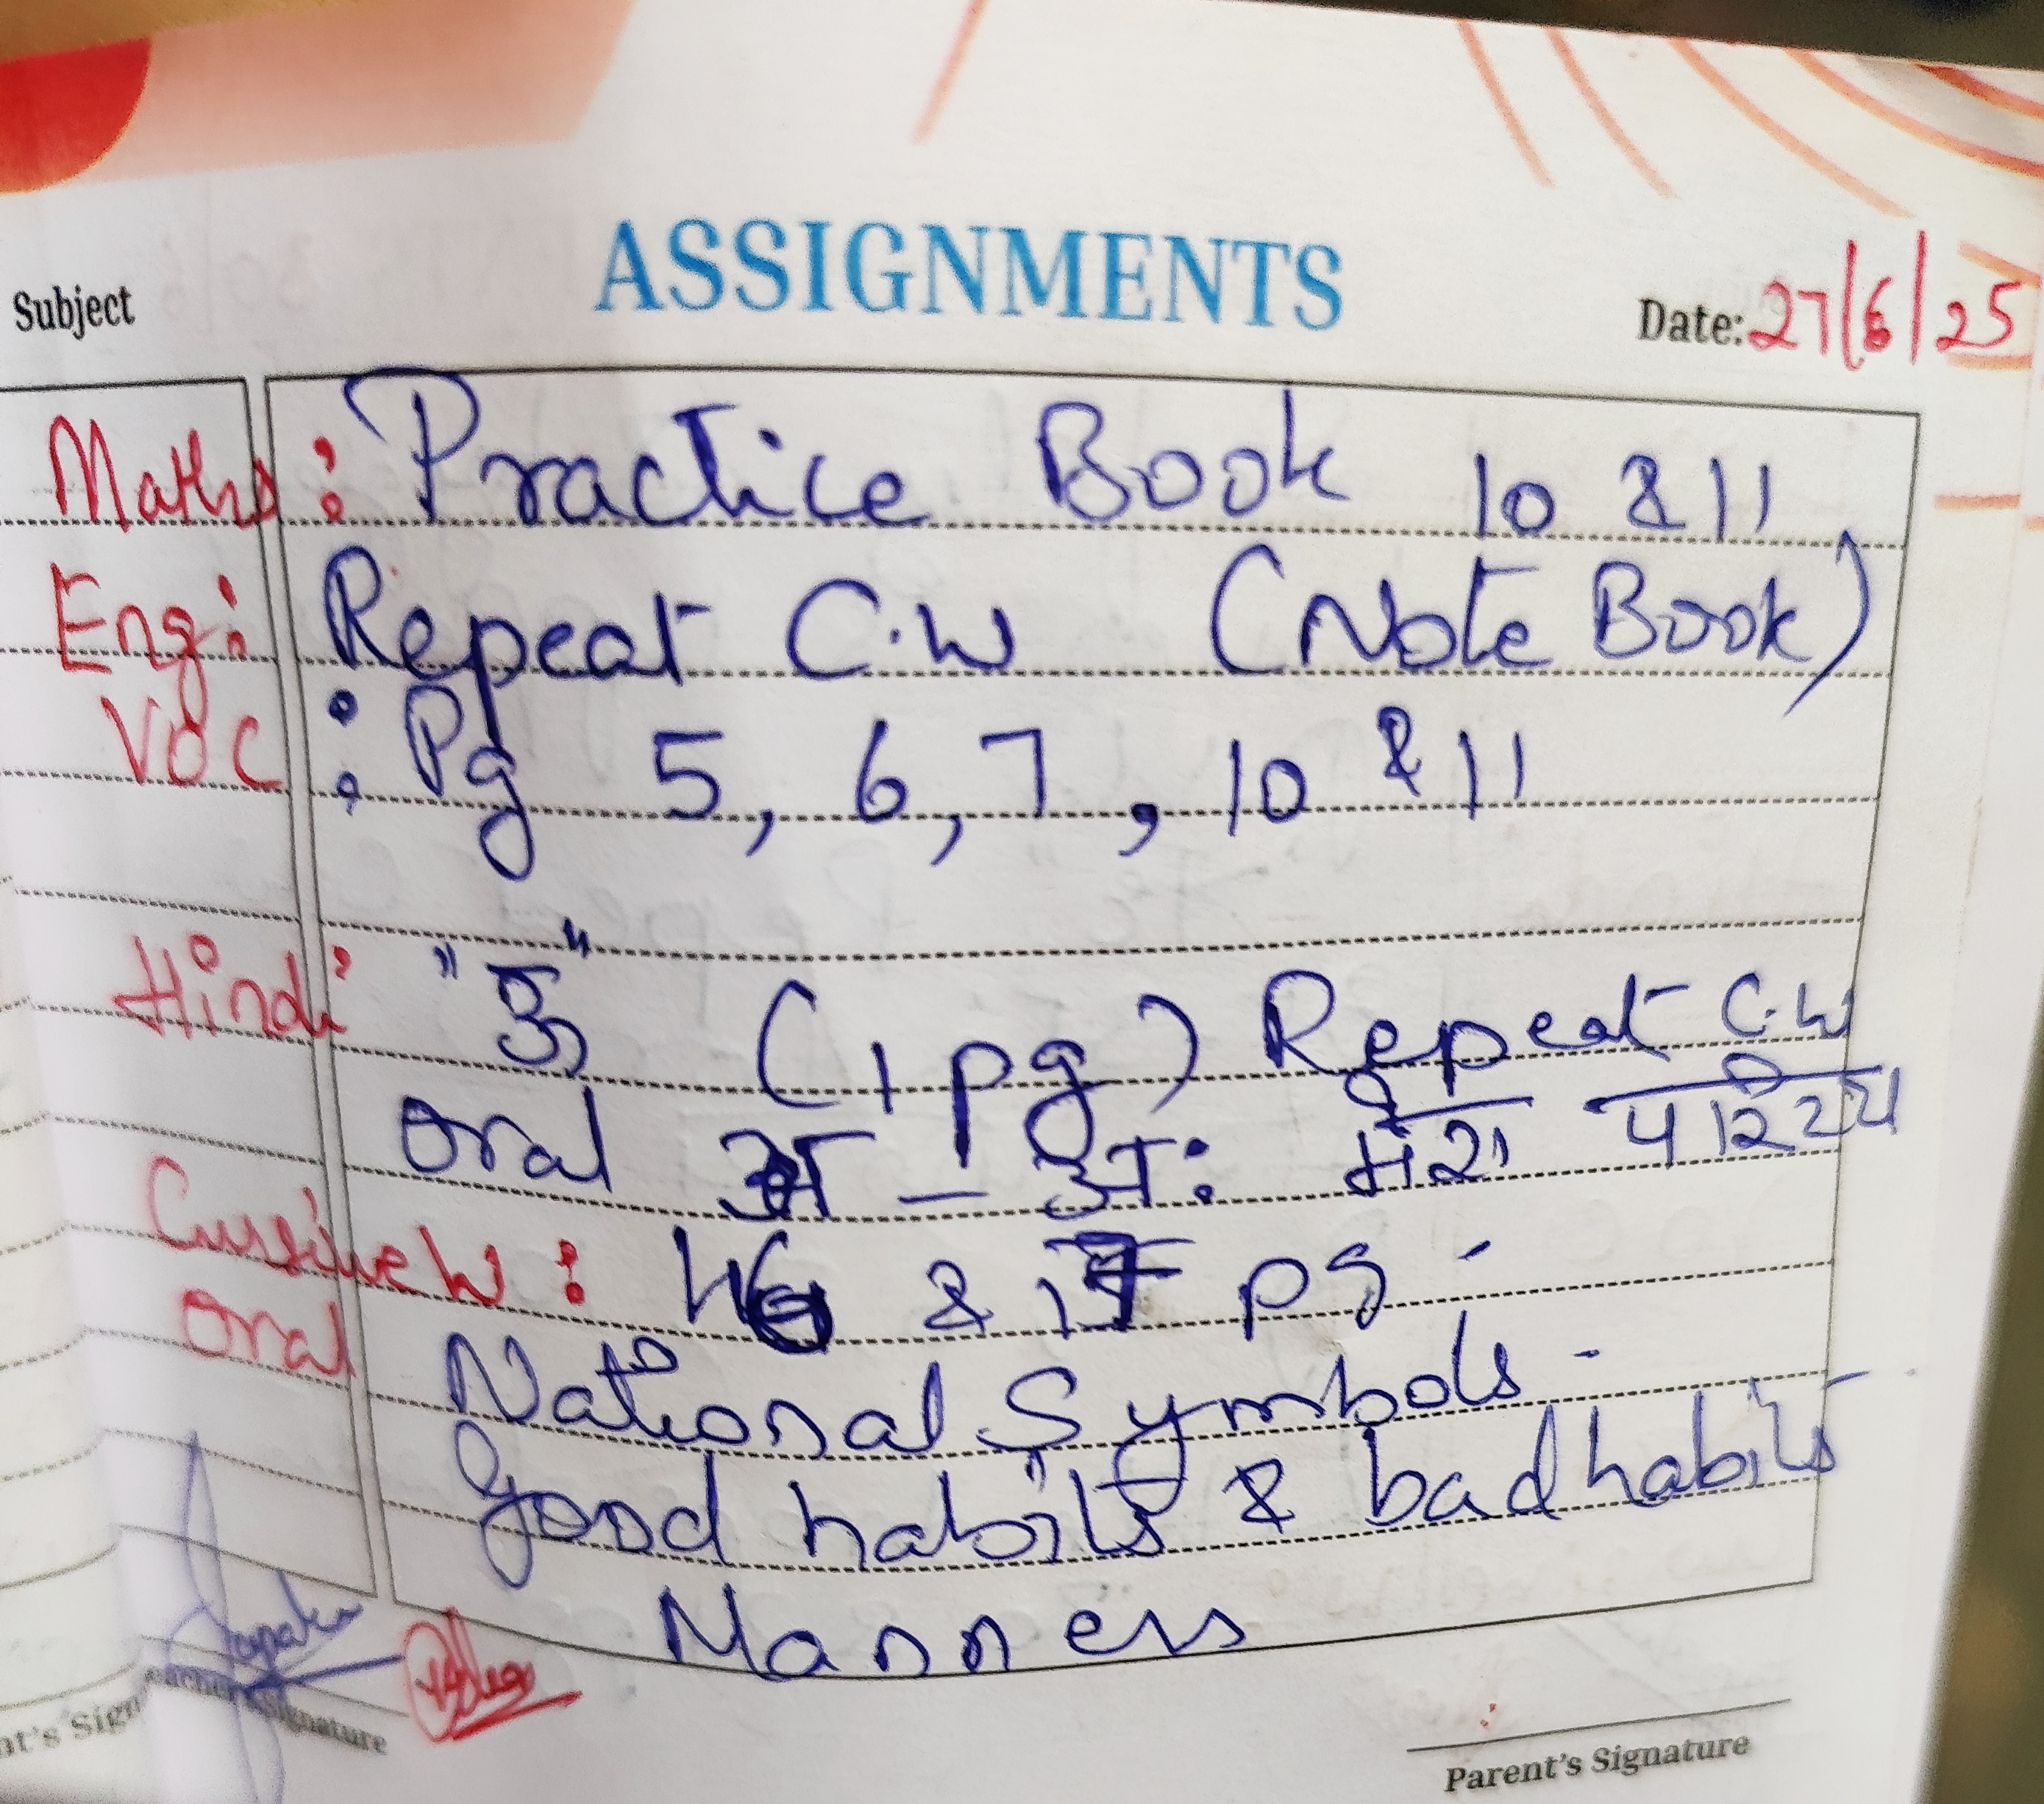 ASSIGNMENTS
Subject
Date: 27/6/25
Maths: Practice Book 10 & 11
Eng: Repeat C.W (Note Book)
VOC : Pg 5, 6, 7, 10 & 11
Hindi: "ऊ" (1 pg) Repeat C.W
Oral अ - अ: मेरा परिचय
Cursive W: & pg -
Oral National Symbols -
Good habits & bad habits
Manners
Signature
Parent's Signature